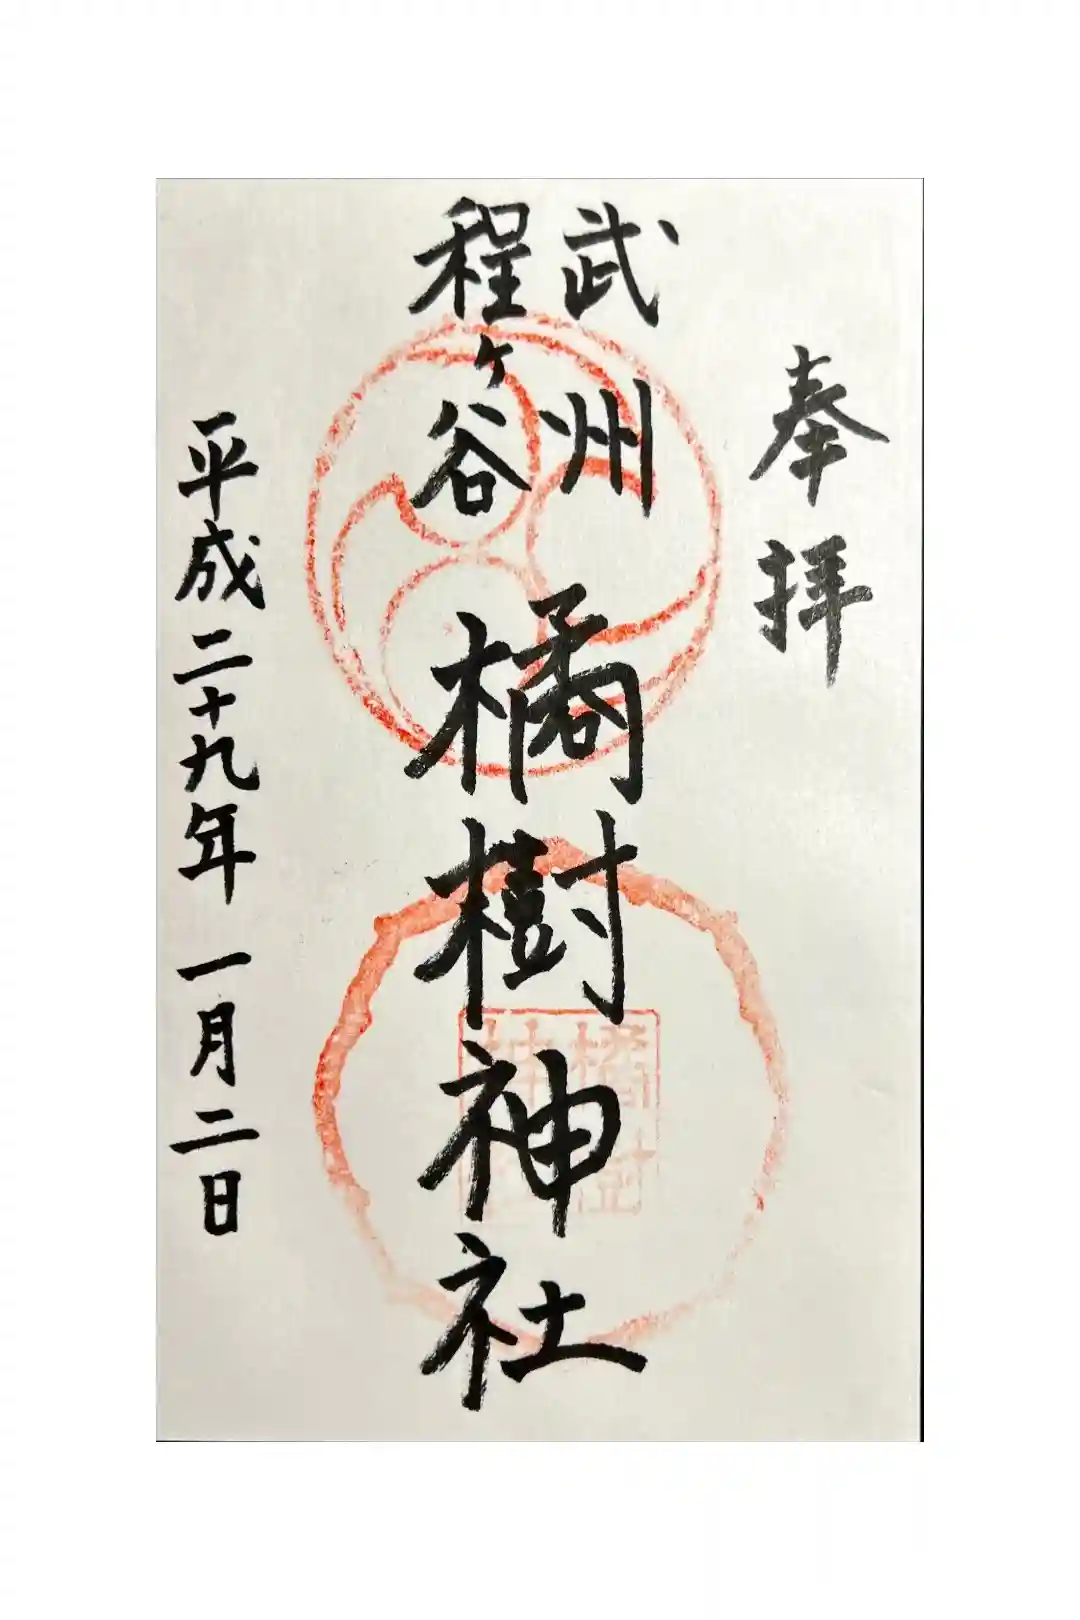 奉拝
武州
程ヶ谷
橘樹神社
平成二十九年一月二日
橘樹
神